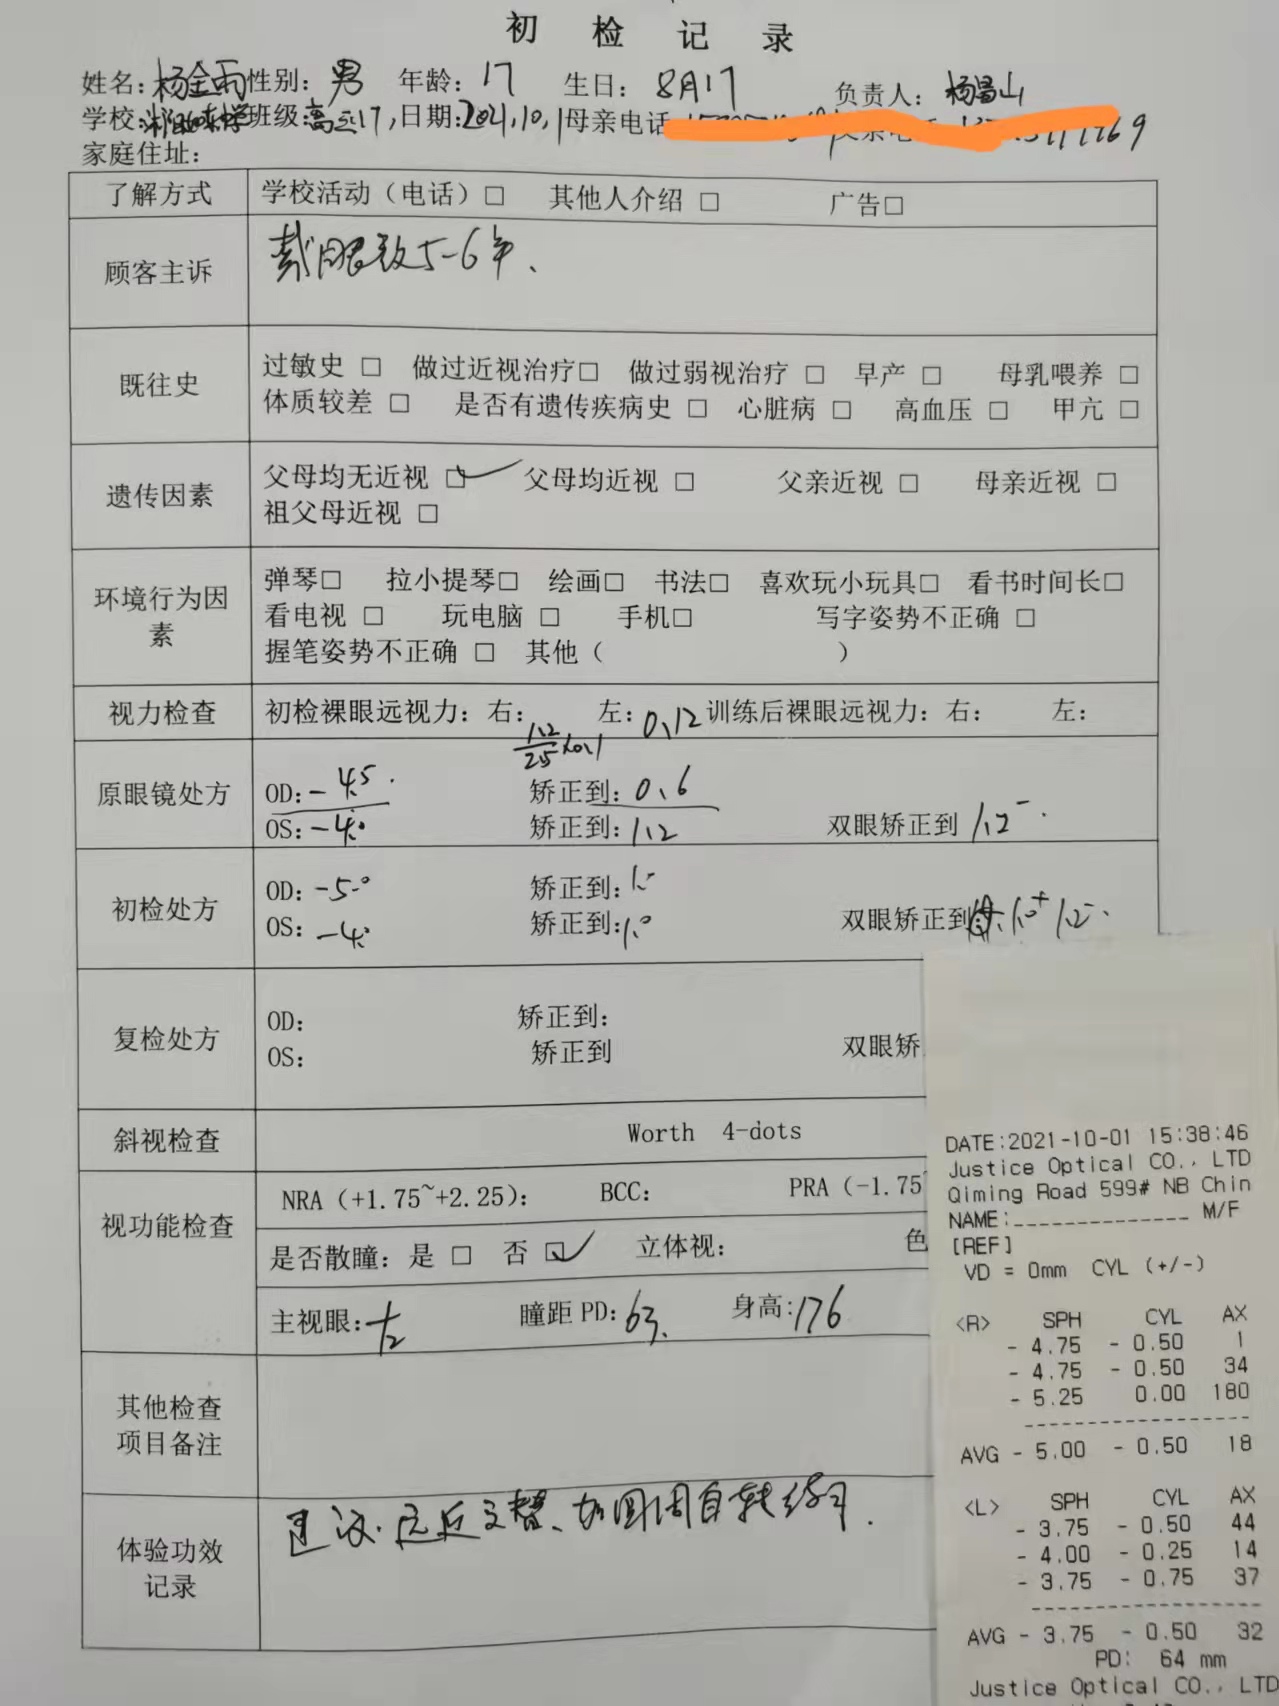 初 检 记 录
姓名：杨全雨 性别：男 年龄：17 生日：8月17 负责人：杨昌山
学校： 班级：高三17, 日期：2021.10.1 母亲电话
家庭住址：
了解方式 学校活动（电话）□ 其他人介绍 □ 广告□
顾客主诉 戴眼镜5-6年、
既往史 过敏史 □ 做过近视治疗□ 做过弱视治疗 □ 早产 □ 母乳喂养 □
体质较差 □ 是否有遗传疾病史 □ 心脏病 □ 高血压 □ 甲亢 □
遗传因素 父母均无近视 ☑ 父母均近视 □ 父亲近视 □ 母亲近视 □
祖父母近视 □
环境行为因素 弹琴□ 拉小提琴□ 绘画□ 书法□ 喜欢玩小玩具□ 看书时间长□
看电视 □ 玩电脑 □ 手机□ 写字姿势不正确 □
握笔姿势不正确 □ 其他（ ）
视力检查 初检裸眼远视力：右： 左：0.12 训练后裸眼远视力：右： 左：
1.2/25 x0.1
原眼镜处方 OD：-4.5 矫正到：0.6
OS：-4.0 矫正到：1.2 双眼矫正到 1.2-
初检处方 OD：-5.0 矫正到：
OS：-4.0 矫正到：1.0 双眼矫正到 1.0+ 1.2-
复检处方 OD： 矫正到：
OS： 矫正到 双眼矫
斜视检查 Worth 4-dots
视功能检查 NRA（+1.75~+2.25）： BCC： PRA（-1.75
是否散瞳：是 □ 否 ☑ 立体视： 色
主视眼：左 瞳距 PD：63. 身高：176
其他检查项目备注
体验功效记录 建议.远近交替、加圆周自转练习.
DATE:2021-10-01 15:38:46
Justice Optical CO., LTD
Qiming Road 599# NB Chin
NAME:______________ M/F
[REF]
VD = 0mm CYL (+/-)
<R> SPH CYL AX
- 4.75 - 0.50 1
- 4.75 - 0.50 34
- 5.25 0.00 180
AVG - 5.00 - 0.50 18
<L> SPH CYL AX
- 3.75 - 0.50 44
- 4.00 - 0.25 14
- 3.75 - 0.75 37
AVG - 3.75 - 0.50 32
PD: 64 mm
Justice Optical CO., LTD